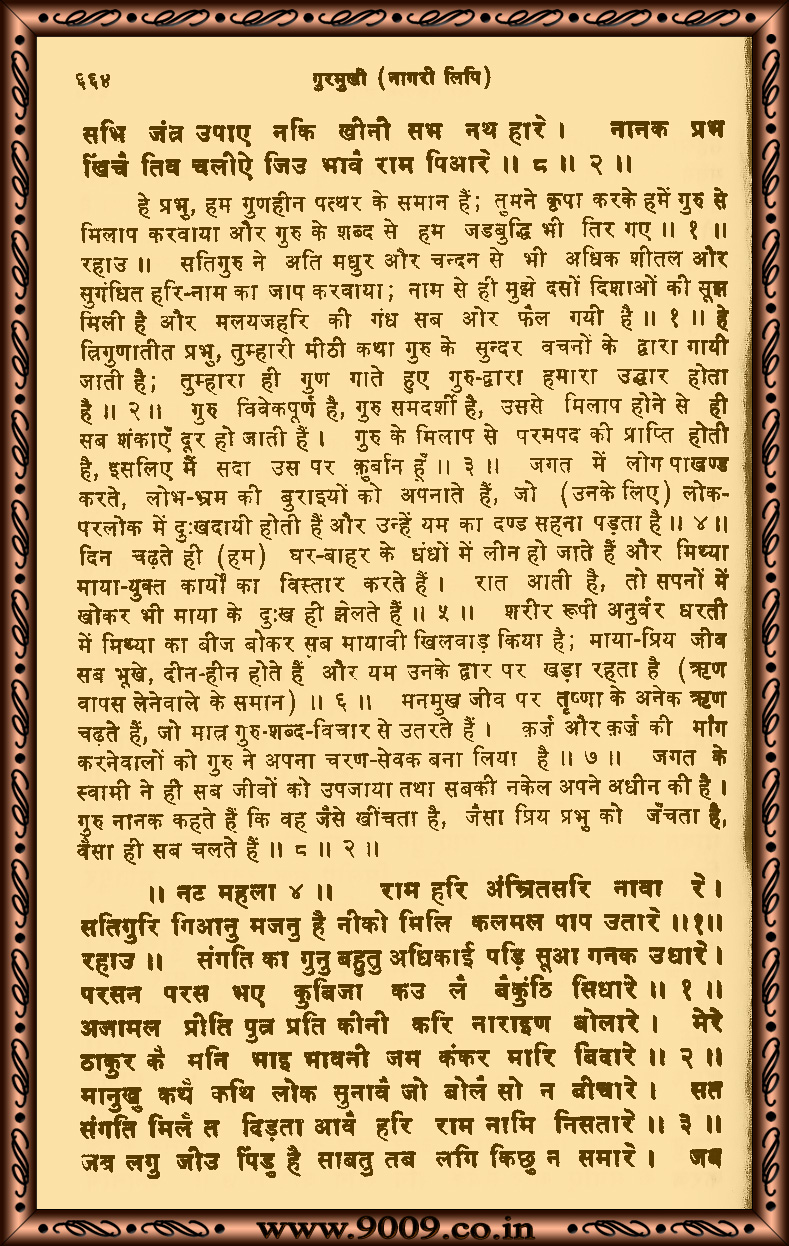 ६६४ गुरमुखी (नागरी लिपि)
सभि जंत्र उपाए नकि खीनी सभ नथ हारे । नानक प्रभ
खिंचै तिव चलीऐ जिउ भावै राम पिआरे ॥ ८ ॥ २ ॥
हे प्रभु, हम गुणहीन पत्थर के समान हैं; तुमने कृपा करके हमें गुरु से
मिलाप करवाया और गुरु के शब्द से हम जडबुद्धि भी तिर गए ॥ १ ॥
रहाउ ॥ सतिगुरु ने अति मधुर और चन्दन से भी अधिक शीतल और
सुगंधित हरि-नाम का जाप करवाया; नाम से ही मुझे दसों दिशाओं की सूझ
मिली है और मलयजहरि की गंध सब ओर फैल गयी है ॥ १ ॥ हे
त्रिगुणातीत प्रभु, तुम्हारी मीठी कथा गुरु के सुन्दर वचनों के द्वारा गायी
जाती है; तुम्हारा ही गुण गाते हुए गुरु-द्वारा हमारा उद्धार होता
है ॥ २ ॥ गुरु विवेकपूर्ण है, गुरु समदर्शी है, उससे मिलाप होने से ही
सब शंकाएँ दूर हो जाती हैं । गुरु के मिलाप से परमपद की प्राप्ति होती
है, इसलिए मैं सदा उस पर क़ुर्बान हूँ ॥ ३ ॥ जगत में लोग पाखण्ड
करते, लोभ-भ्रम की बुराइयों को अपनाते हैं, जो (उनके लिए) लोक-
परलोक में दुःखदायी होती हैं और उन्हें यम का दण्ड सहना पड़ता है ॥ ४ ॥
दिन चढ़ते ही (हम) घर-बाहर के धंधों में लीन हो जाते हैं और मिथ्या
माया-युक्त कार्यों का विस्तार करते हैं । रात आती है, तो सपनों में
खोकर भी माया के दुःख ही झेलते हैं ॥ ५ ॥ शरीर रूपी अनुर्वर धरती
में मिथ्या का बीज बोकर सब मायावी खिलवाड़ किया है; माया-प्रिय जीव
सब भूखे, दीन-हीन होते हैं और यम उनके द्वार पर खड़ा रहता है (ऋण
वापस लेनेवाले के समान) ॥ ६ ॥ मनमुख जीव पर तृष्णा के अनेक ऋण
चढ़ते हैं, जो मात्र गुरु-शब्द-विचार से उतरते हैं । क़र्ज़ और क़र्ज़ की माँग
करनेवालों को गुरु ने अपना चरण-सेवक बना लिया है ॥ ७ ॥ जगत के
स्वामी ने ही सब जीवों को उपजाया तथा सबकी नकेल अपने अधीन की है ।
गुरु नानक कहते हैं कि वह जैसे खींचता है, जैसा प्रिय प्रभु को जँचता है,
वैसा ही सब चलते हैं ॥ ८ ॥ २ ॥
॥ नट महला ४ ॥ राम हरि अंम्रितसरि नावा रे ।
सतिगुरि गिआनु मजनु है नीको मिलि कलमल पाप उतारे ॥१॥
रहाउ ॥ संगति का गुनु बहुतु अधिकाई पड़ि सूआ गनक उधारे ।
परसन परस भए कुबिजा कउ लै बैकुंठि सिधारे ॥ १ ॥
अजामल प्रीति पुत्र प्रति कीनी करि नाराइण बोलारे । मेरे
ठाकुर कै मनि भाइ भावनी जम कंकर मारि बिदारे ॥ २ ॥
मानुखु कथै कथि लोक सुनावै जो बोलै सो न बीचारे । सत
संगति मिलै त दिड़ता आवै हरि राम नामि निसतारे ॥ ३ ॥
जब लगु जीउ पिंडु है साबतु तब लगि किछु न समारे । जब
www.9009.co.in